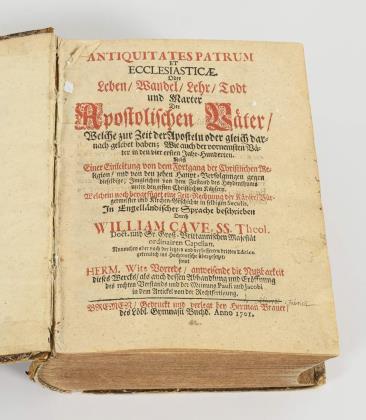 ANTIQUITATES PATRUM
ET
ECCLESIASTICÆ.
Oder
Leben/ Wandel/ Lehr/ Todt
und Marter
Der
Apostolischen Väter/
Welche zur Zeit der Aposteln oder gleich dar-
nach gelebet haben: Wie auch der vornemsten Vä-
ter in den vier ersten Jahr-Hunderten.
Nebst
Einer Einleitung von dem Fortgang der Christlichen Re-
ligion/ und von den zehen Haupt-Verfolgungen gegen
dieselbige; Imgleichen von dem Zustand des Heydenthums
unter den ersten Christlichen Käysern.
Welchem noch beygefüget eine Zeit-Rechnung der
und Kirchen-Geschichte in selbigen Seculis.
In Engelländischer Sprache beschrieben
Durch
WILLIAM CAVE, SS. Theol.
Doct. und Sr. Groß-Brittannischen Majestät
ordinairen Capellan.
Nunmehro aber nach der letzten und
ins Hochteutsche übergesetzet
samt
HERM. Wits Vorrede/ anweisende die Nutzbarkeit
dieses Wercks/ als auch dessen Abhandlung und Eröffnung
des rechten Verstands und der Meinung Pauli und Jacobi
in dem Articul von der Rechtfertigung.
BREMEN/ Gedruckt und verlegt bey Herman Brauer/
des Löbl. Gymnasii Buchd. Anno 1701.